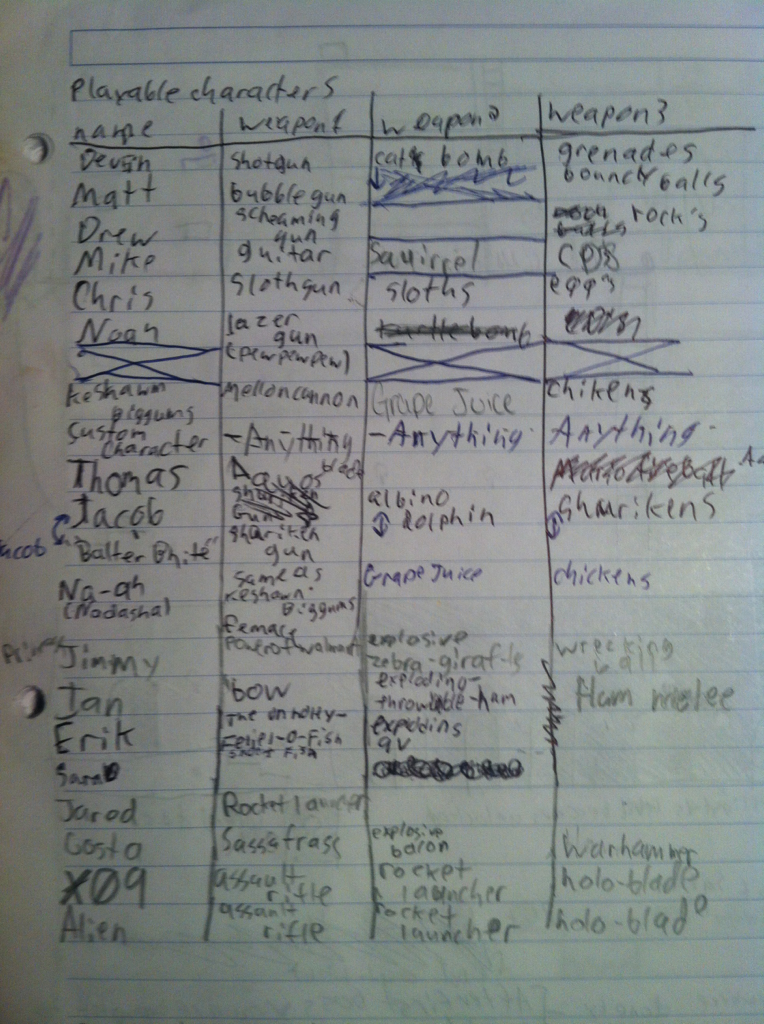 Playable characters
name weapon1 weapon2 weapon3
Devon shotgun cats bomb grenades
Matt bubble gun bouncy balls
Drew screaming gun rock's
Mike guitar Squirrel CDs
Chris Slothgun sloths eggs
Noah lazer gun
(pewpewpew)
Keshawn Biggums Melloncannon Grape Juice chikens
Custom Character -Anything -Anything- Anything-
Thomas
Jacob albino dolphin shurikens
"Balter Bhite" shuriken gun
Na-ah same as Grape Juice chickens
(Nadasha) Keshawn Biggums
female
Jimmy Power of walmart explosive zebra-giraffe wrecking ball
Ian bow exploding-throwable-ham Ham melee
Erik The unholy-
Fetlel-O-Fish
shoot Fish
Sara
Jarod Rocket launcher
Costa Sassafrass explosive baron Warhammer
X09 assault rifle rocket launcher holo-blade
Alien assault rifle rocket launcher holo-blade